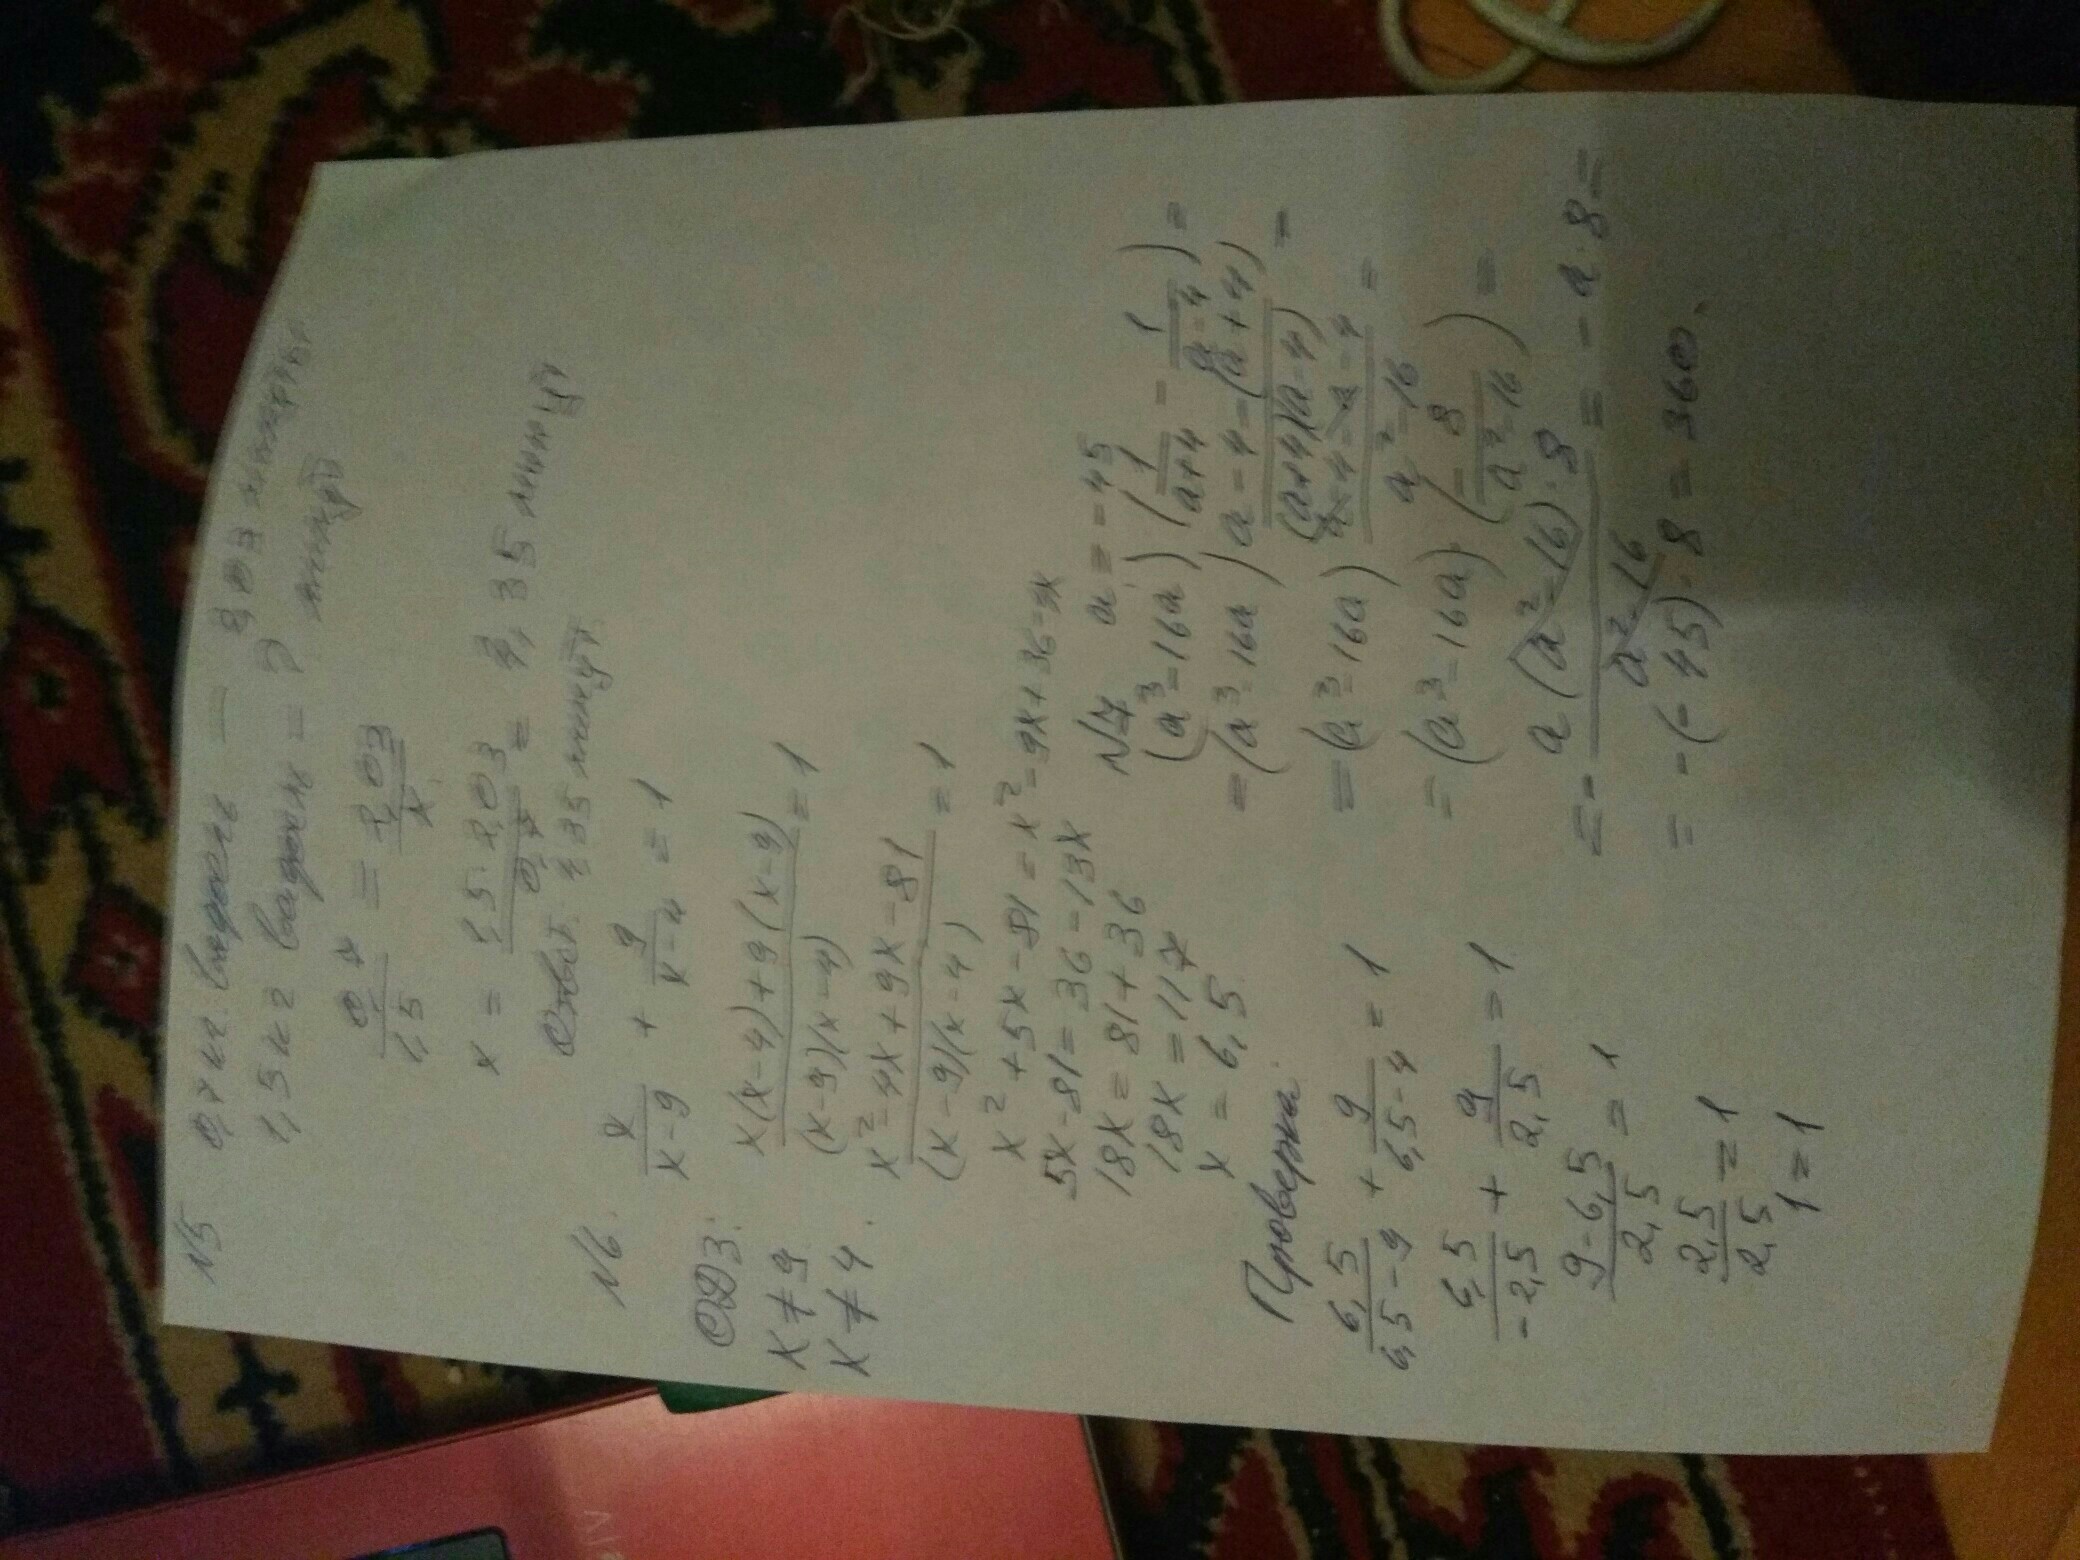 N5 0,7 кг. вафель — 2,03 минуты.
1,5 кг вафель = ? минут
0,7/1,5 = 2,03/x
x = 1,5·2,03/0,7 = 4,35 минут.
Ответ. 4,35 минут.
N6. x/x-9 + 9/x-4 = 1
ОДЗ: x(x-4)+9(x-9)/(x-9)(x-4) = 1
x≠9
x≠4. x²-4x+9x-81/(x-9)(x-4) = 1
x²+5x-81 = x²-9x+36-4x
5x-81=36-13x
18x = 81+36
18x = 117
x = 6,5.
Проверка.
6,5/6,5-9 + 9/6,5-4 = 1
6,5/-2,5 + 9/2,5 = 1
9-6,5/2,5 = 1
2,5/2,5 = 1
1=1
N7 a = -45
(a³-16a)·(1/a+4 - 1/a-4) =
=(a³-16a) a-4-(a+4)/(a+4)(a-4) =
=(a³-16a) a-4-a-4/a²-16 =
=(a³-16a)·(-8/a²-16) =
=- a(a²-16)·8/a²-16 = -a·8 =
= -(-45)·8 = 360.